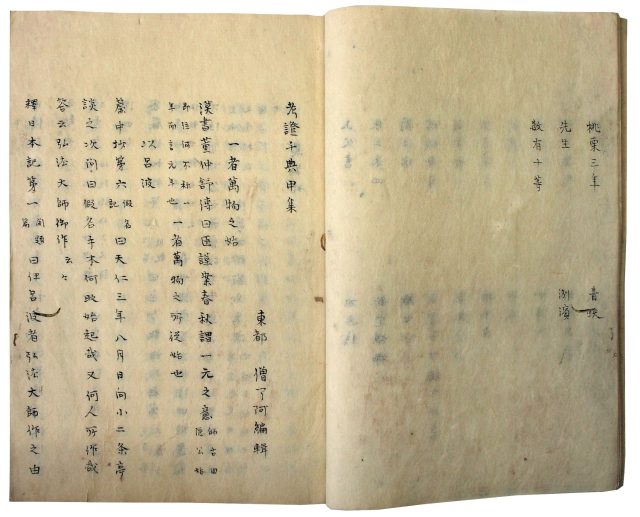 桃栗三年
先生
数有十等
考證千典甲集
東都 僧了阿編輯
一者萬物之始
漢書董仲舒傳曰臣謹案春秋謂一元之意 師古曰隱公始
即位何不称一年而言元年也 一者萬物之所從始也
以呂波
中抄第六 假名記 曰天仁三年八月日向小二条亭
談之次問曰假名手本何時始起哉又何人所作哉
答云弘法大師御作云々
釋日本記第一 開題篇 曰伊呂波者弘法大師作之由